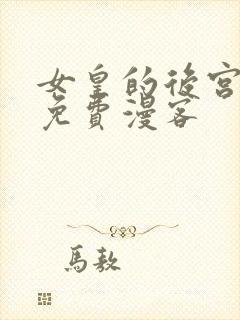 女皇的後宮
免費漫客
馬敖